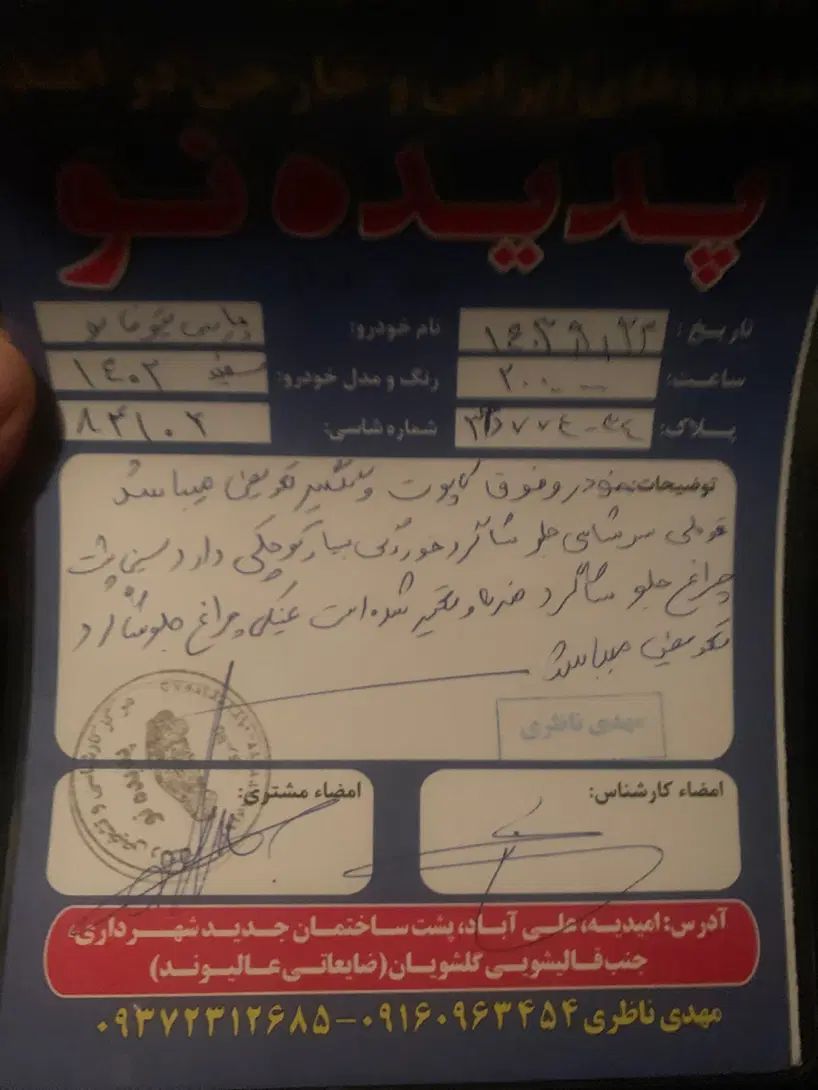 پدیده نو
تاریخ: ۱۴۰۳/۹/۲۳ نام خودرو: پارس
ساعت: ۲۰:۰۰ رنگ و مدل خودرو: سفید ۱۴۰۲
پلاک: شماره شاسی: ۸۳۱۰۲
توضیحات: خودرو فوق کاپوت و گلگیر تعویض میباشد
سرشاسی جلو شاگرد خوردگی بسیار کوچکی دارد سینی پشت
چراغ جلو شاگرد ضربه و تعمیر شده است عینکی چراغ جلو شاگرد
تعویض میباشد
مهدی ناظری
امضاء کارشناس: امضاء مشتری:
آدرس: امیدیه، علی آباد، پشت ساختمان جدید شهرداری،
جنب قالیشویی گلشویان (ضایعاتی عالیوند)
مهدی ناظری ۰۹۱۶۰۹۶۳۴۵۴-۰۹۳۷۲۳۱۲۶۸۵